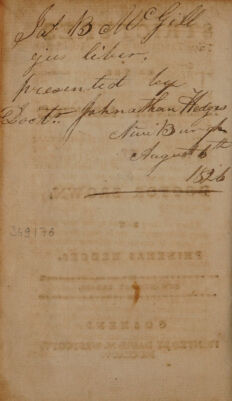 Jas B McGill
ejus liber,
presented by
Doctr. Johnathan Hedges
New Burgh
August 6th
1826
349176